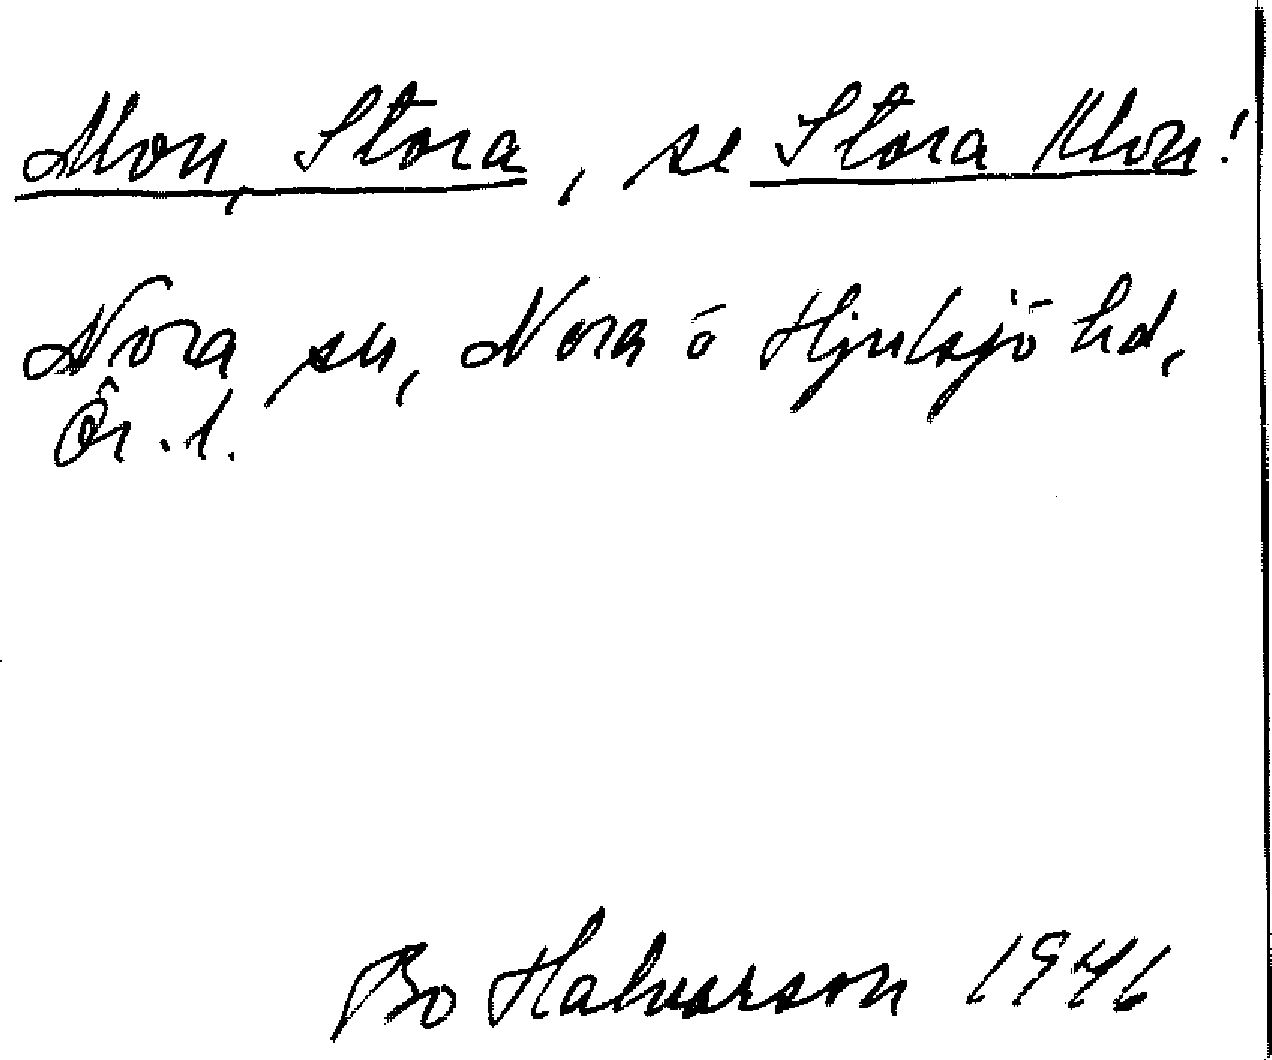 Mon, Stora, se Stora Mon!
Nora sn, Nora ö Hjulsjö hd,
Ör. l.
Bo Halvarson 1946